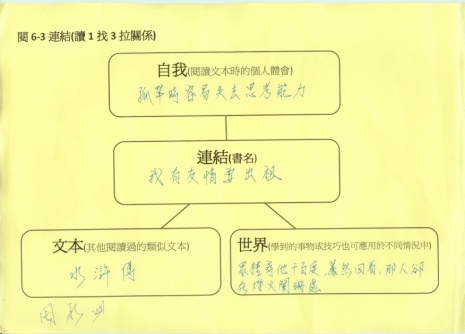 閱 6-3 連結(讀 1 找 3 拉關係)
自我(閱讀文本時的個人體會)
孤單時容易失去思考能力
連結(書名)
我有友情要出租
文本(其他閱讀過的類似文本)
水滸傳
世界(學到的事物或技巧也可應用於不同情境中)
眾裡尋他千百度,驀然回首,那人卻
在燈火闌珊處
周